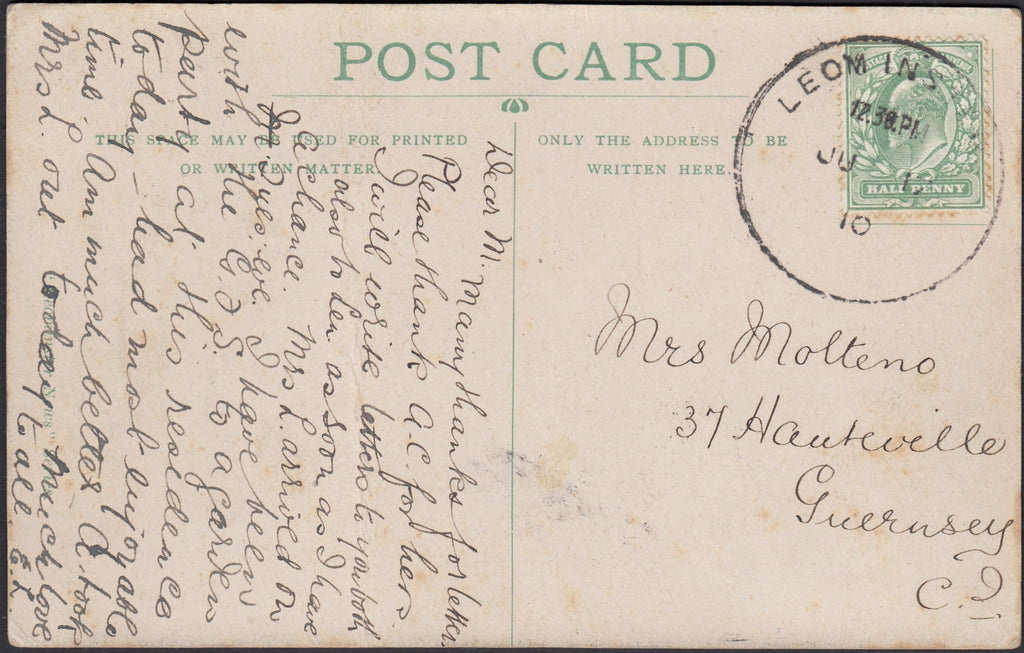 POST CARD
THIS SPACE MAY BE USED FOR PRINTED
OR WRITTEN MATTER.
ONLY THE ADDRESS TO BE
WRITTEN HERE.
LEOMINS
12.30.PM
JU
10
HALFPENNY
Mrs Molteno
37 Hauteville
Guernsey
C.I.
Dear M. Many thanks for letter.
Please thank A.C. for hers
I will write letters to you both
also to Len as soon as I have
a chance. Mrs L. arrived on
eve. I have been
with the G.F.S. to a garden
party at this residence
to day – had most enjoyable
time. Am much better & took
Mrs L. out to day. Much love
to all. E.L.